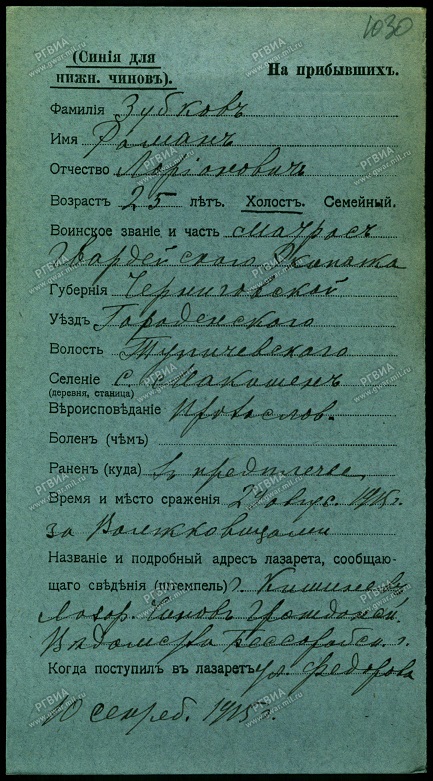 1030
(Синія для
нижн. чиновъ).
На прибывшихъ.
Фамилія Зубковъ
Имя Романъ
Отчество Ларіоновичъ
Возрастъ 25 лѣтъ. Холостъ. Семейный.
Воинское званіе и часть матросъ
Гвардейскаго Экипажа
Губернія Черниговской
Уѣздъ Городенского
Волость Тупичевского
Селеніе с. Макошенъ
(деревня, станица)
Вѣроисповѣданіе Православ.
Боленъ (чѣмъ)
Раненъ (куда) въ предплечье
Время и мѣсто сраженія 29 авгус. 1915 г.
за
Названіе и подробный адресъ лазарета, сообщаю-
щаго свѣдѣнія (штемпель) г. Кишиневъ
Лазар. Чиновъ Гражданск.
Вѣдомства Бессарабск. г.
Когда поступилъ въ лазаретъ ул. Федорова
10 сентеб. 1915 г.